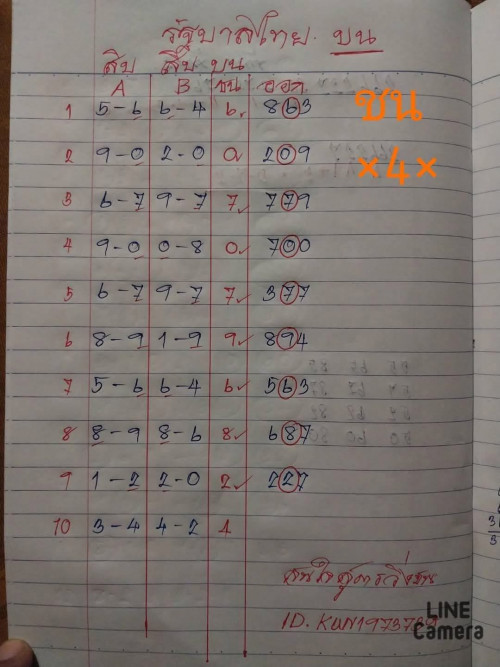 รัฐบาลไทย. บน
สิบ สิบ บน
A B ชน ออก
1 5-6 6-4 6 863 ชน
2 9-0 2-0 0 209 ×4×
3 6-7 9-7 7 779
4 9-0 0-8 0✓ 700
5 6-7 9-7 7✓ 377
6 8-9 1-9 9✓ 894
7 5-6 6-4 6✓ 563
8 8-9 8-6 8✓ 687
9 1-2 2-0 2✓ 227
10 3-4 4-2 4
สนใจสูตรวิ่งบน
LINE
Camera